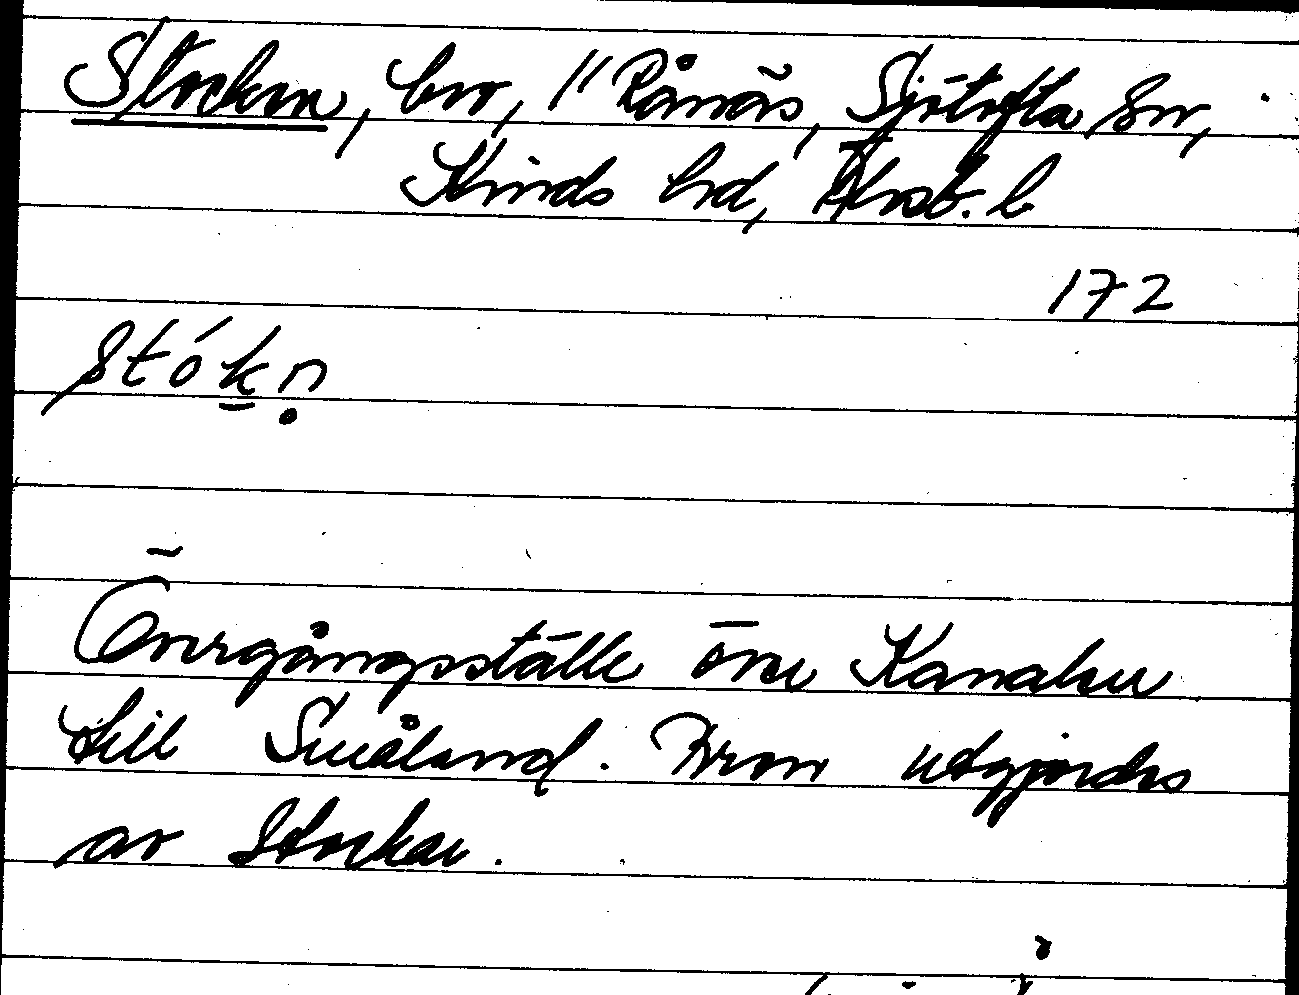 Stocken, bro, // Rånäs, Sjötofta sn,
Kinds hd, Älvsb. l.
172
stók̠ṇ
Övergångsställe över Kanalen
till Småland. Bron utgjordes
av Stockar.